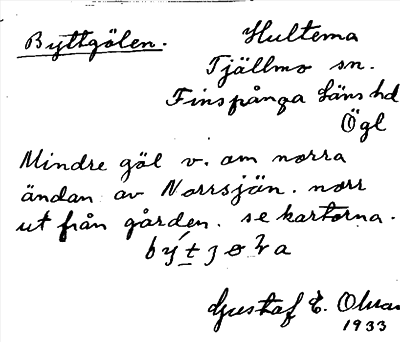 Byttgölen. Hultema
Tjällmo sn.
Finspånga läns hd
Ögl
Mindre göl v. om norra
ändan av Norrsjön. norr
ut från gården. se kartorna.
Gustaf E.
1933